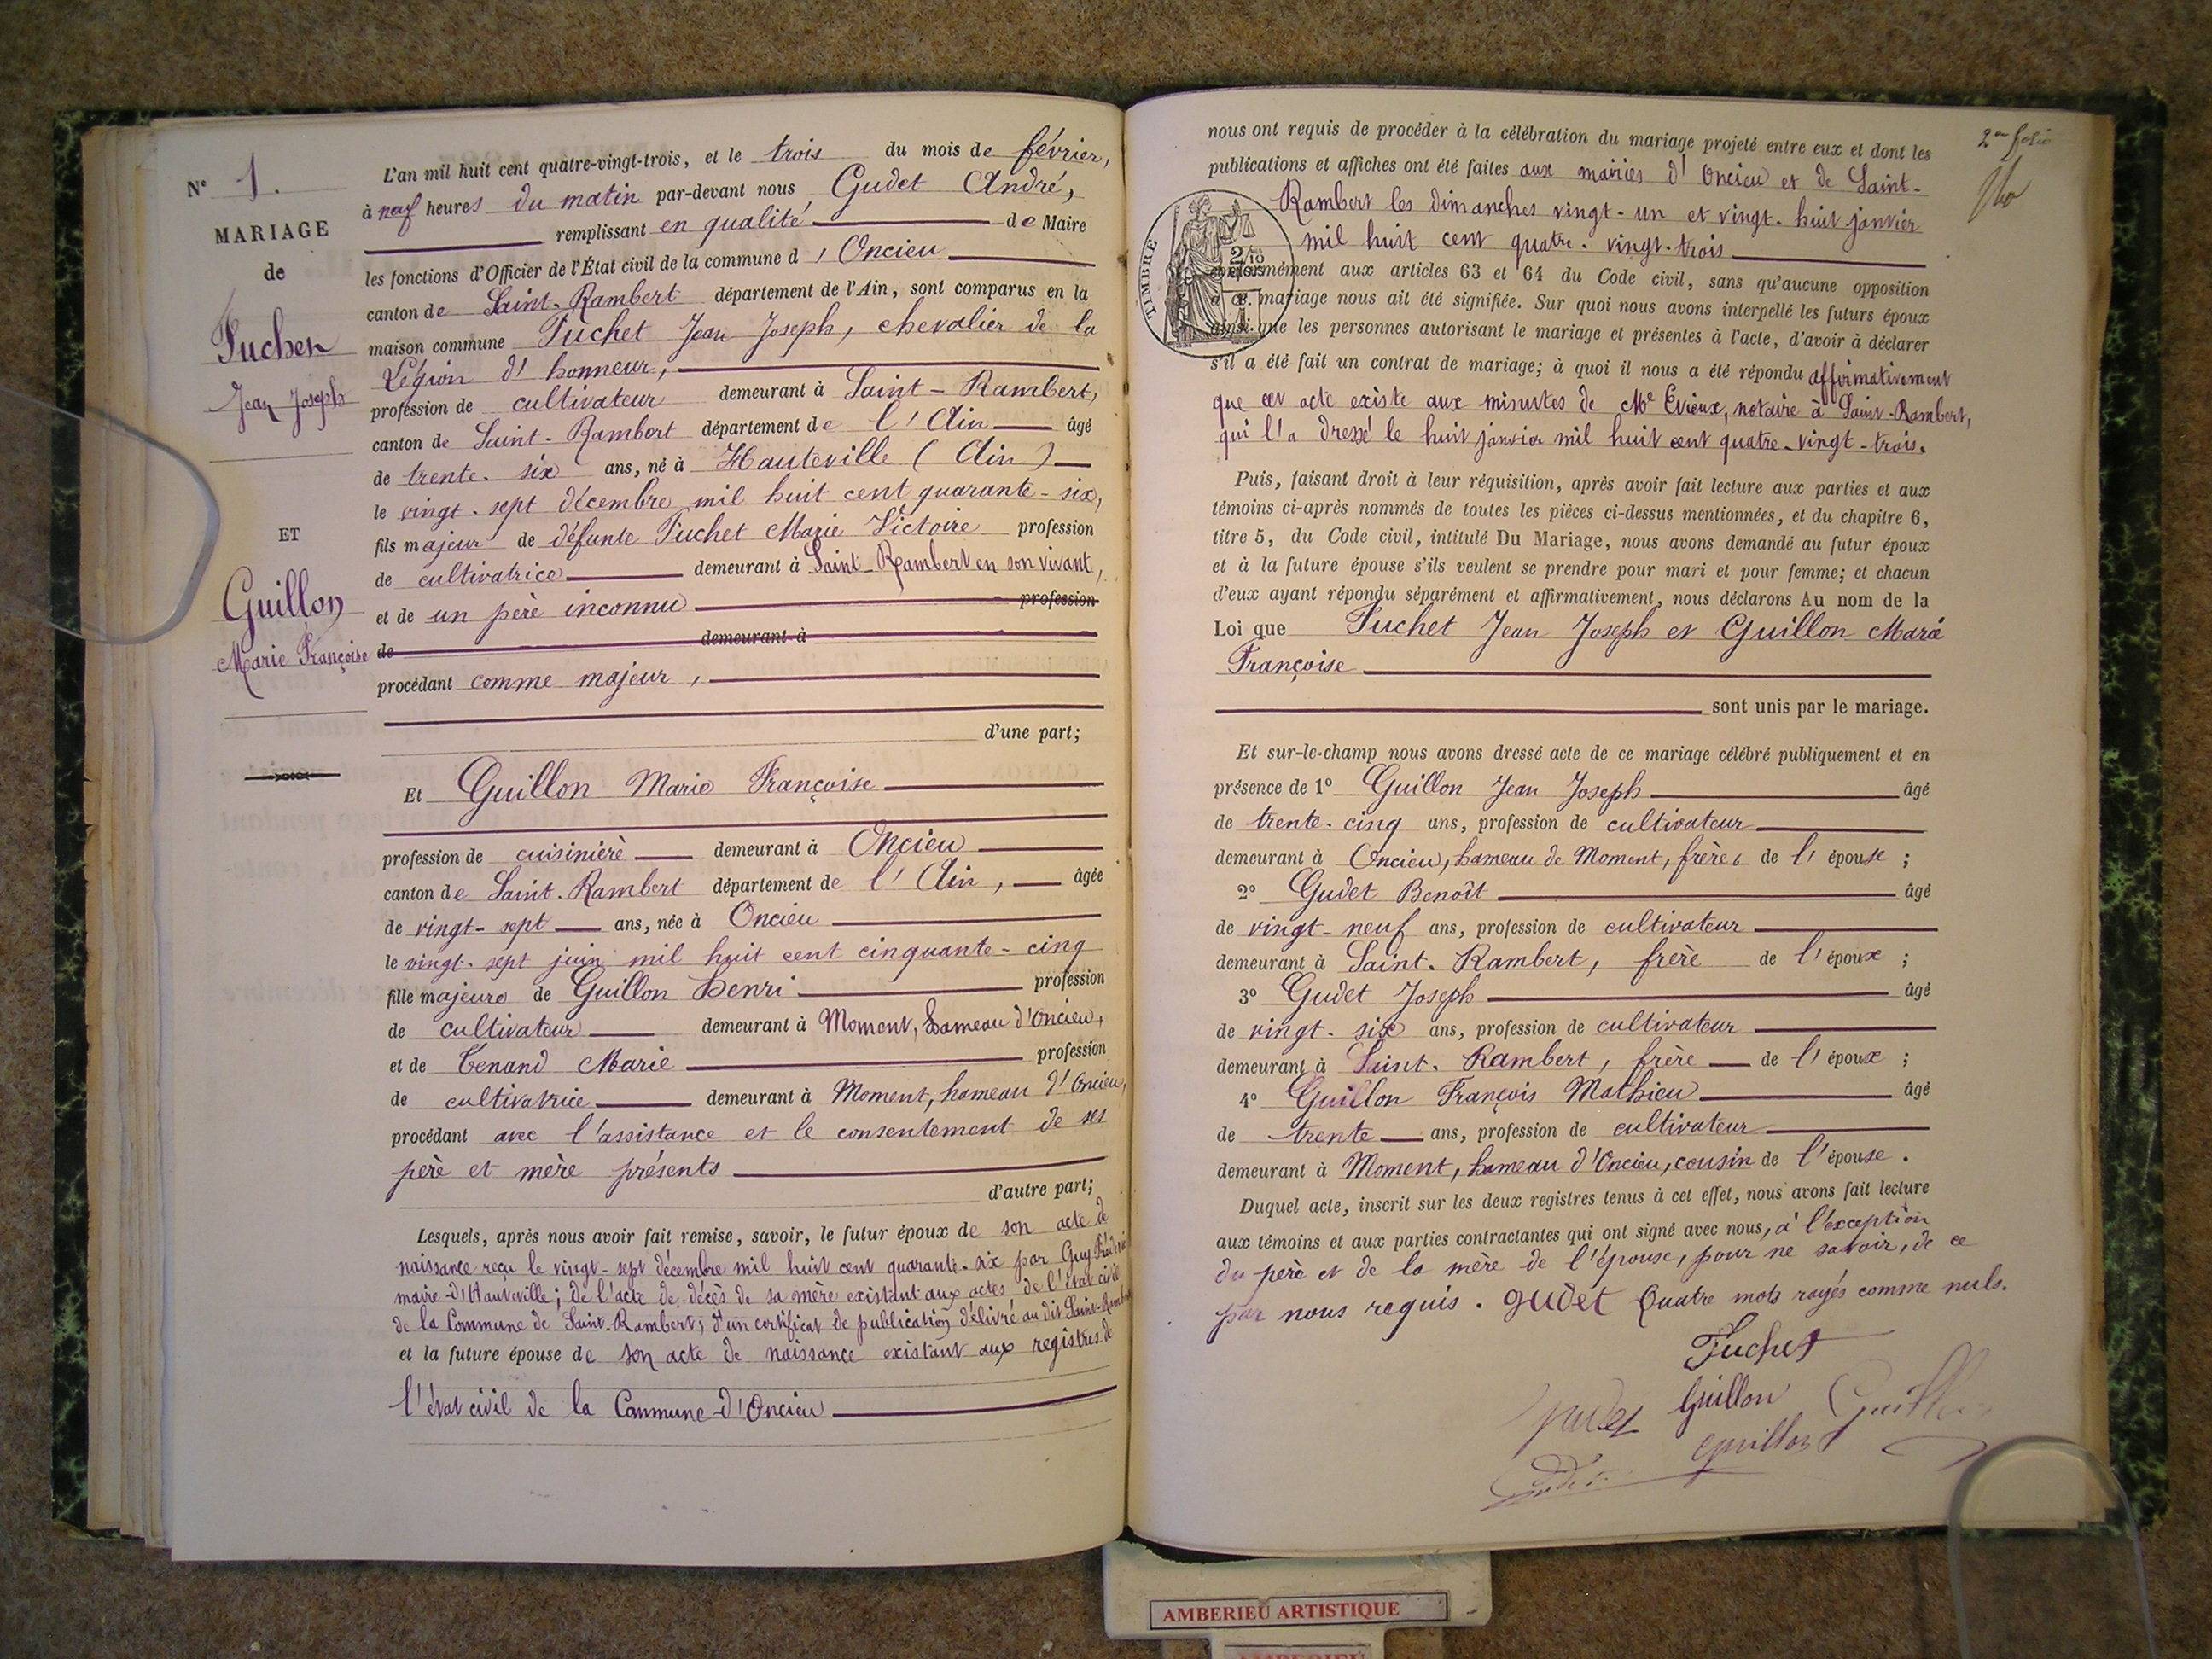 N° 1.
MARIAGE
de
Puchet
Jean Joseph
ET
Guillon
Marie Françoise
L'an mil huit cent quatre-vingt-trois, et le trois du mois de février,
à neuf heures du matin par-devant nous Gudet André,
remplissant en qualité de Maire
les fonctions d'Officier de l'État civil de la commune d'Oncieu
canton de Saint-Rambert département de l'Ain, sont comparus en la
maison commune Puchet Jean Joseph, chevalier de la
Légion d'honneur,
profession de cultivateur demeurant à Saint-Rambert,
canton de Saint-Rambert département de l'Ain âgé
de trente-six ans, né à Hauteville (Ain)
le vingt-sept décembre mil huit cent quarante-six,
fils majeur de défunte Puchet Marie Victoire profession
de cultivatrice demeurant à Saint-Rambert en son vivant,
et de un père inconnu profession
de demeurant à
procédant comme majeur,
d'une part;
Et Guillon Marie Françoise
profession de cuisinière demeurant à Oncieu
canton de Saint-Rambert département de l'Ain, âgée
de vingt-sept ans, née à Oncieu
le vingt-sept juin mil huit cent cinquante-cinq
fille majeure de Guillon Henri profession
de cultivateur demeurant à Moment, hameau d'Oncieu,
et de Tenand Marie profession
de cultivatrice demeurant à Moment, hameau d'Oncieu,
procédant avec l'assistance et le consentement de ses
père et mère présents
d'autre part;
Lesquels, après nous avoir fait remise, savoir, le futur époux de son acte de
naissance reçu le vingt-sept décembre mil huit cent quarante-six par Guy
maire d'Hauteville; de l'acte de décès de sa mère existant aux actes de l'état civil
de la Commune de Saint-Rambert; d'un certificat de publication délivré au dit Saint-Rambert
et la future épouse de son acte de naissance existant aux registres de
l'état civil de la Commune d'Oncieu
2me folio
nous ont requis de procéder à la célébration du mariage projeté entre eux et dont les
publications et affiches ont été faites aux mairies d'Oncieu et de Saint-
Rambert les dimanches vingt-un et vingt-huit janvier
mil huit cent quatre-vingt-trois
TIMBRE
2/10
conformément aux articles 63 et 64 du Code civil, sans qu'aucune opposition
à ce mariage nous ait été signifiée. Sur quoi nous avons interpellé les futurs époux
ainsi que les personnes autorisant le mariage et présentes à l'acte, d'avoir à déclarer
s'il a été fait un contrat de mariage; à quoi il nous a été répondu affirmativement
que cet acte existe aux minutes de Me Evieux, notaire à Saint-Rambert,
qui l'a dressé le huit janvier mil huit cent quatre-vingt-trois.
Puis, faisant droit à leur réquisition, après avoir fait lecture aux parties et aux
témoins ci-après nommés de toutes les pièces ci-dessus mentionnées, et du chapitre 6,
titre 5, du Code civil, intitulé Du Mariage, nous avons demandé au futur époux
et à la future épouse s'ils veulent se prendre pour mari et pour femme; et chacun
d'eux ayant répondu séparément et affirmativement, nous déclarons Au nom de la
Loi que Puchet Jean Joseph et Guillon Marie
Françoise
sont unis par le mariage.
Et sur-le-champ nous avons dressé acte de ce mariage célébré publiquement et en
présence de 1° Guillon Jean Joseph âgé
de trente-cinq ans, profession de cultivateur
demeurant à Oncieu, hameau de Moment, frère de l'épouse;
2° Gudet Benoît âgé
de vingt-neuf ans, profession de cultivateur
demeurant à Saint-Rambert, frère de l'époux;
3° Gudet Joseph âgé
de vingt-six ans, profession de cultivateur
demeurant à Saint-Rambert, frère de l'époux;
4° Guillon François Mathieu âgé
de trente ans, profession de cultivateur
demeurant à Moment, hameau d'Oncieu, cousin de l'épouse.
Duquel acte, inscrit sur les deux registres tenus à cet effet, nous avons fait lecture
aux témoins et aux parties contractantes qui ont signé avec nous, à l'exception
du père et de la mère de l'épouse, pour ne savoir, de ce
par nous requis. Gudet Quatre mots rayés comme nuls.
Puchet
Gudet Guillon Guillon
Guillon
AMBERIEU ARTISTIQUE
AMBERIEU